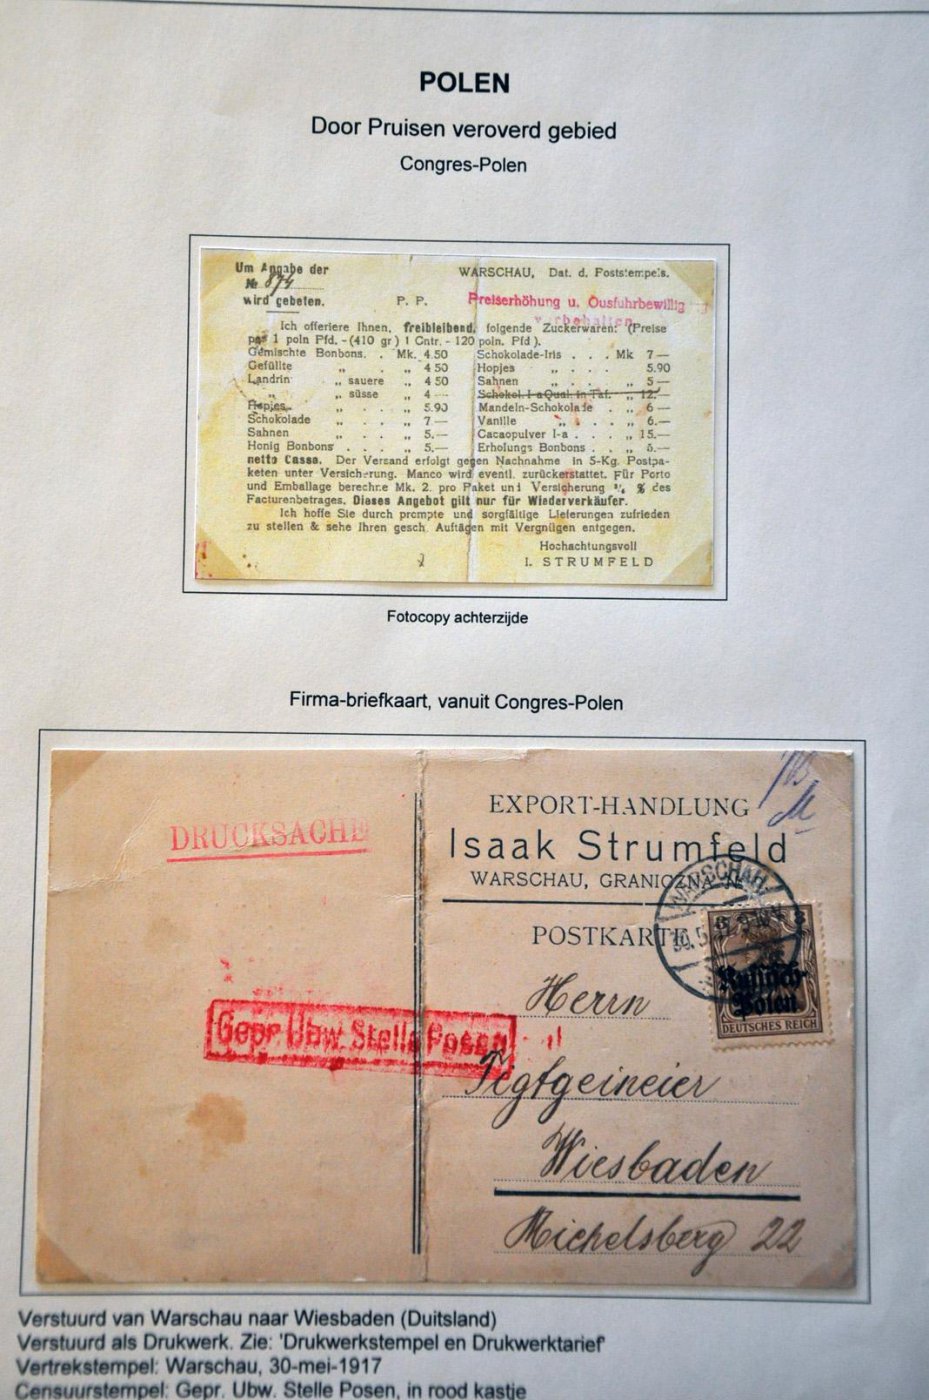 POLEN
Door Pruisen veroverd gebied
Congres-Polen
Um Angabe der
№ 874
wird gebeten.
WARSCHAU, Dat. d. Poststempels.
P. P.
Preiserhöhung u. Ausfuhrbewillig
vorbehalten
Ich offeriere Ihnen, freibleibend, folgende Zuckerwaren: (Preise
per 1 poln Pfd. -(410 gr) 1 Cntr. - 120 poln. Pfd ).
Gemischte Bonbons. . Mk. 4.50
Gefüllte „ . . „ 4 50
Landrin „ sauere „ 4 50
„ „ süsse „ 4 —
Hopjes „ . . „ 5.90
Schokolade „ . . „ 7 —
Sahnen „ . . „ 5.—
Honig Bonbons . . „ 5.—
Schokolade-Iris . . . Mk 7 —
Hopjes „ . . . 5.90
Sahnen „ . . . „ 5 —
Schokol. I-a Qual. in Taf. . „ 12.—
Mandeln-Schokolade . „ 6 —
Vanille „ . . „ 6.—
Cacaopulver I-a . . . „ 15.—
Erholungs Bonbons . . „ 5.—
netto Cassa. Der Versand erfolgt gegen Nachnahme in 5-Kg. Postpa-
keten unter Versicherung. Manco wird eventl. zurückerstattet. Für Porto
und Emballage berechne Mk. 2. pro Paket und Versicherung % des
Facturenbetrages. Dieses Angebot gilt nur für Wiederverkäufer.
Ich hoffe Sie durch prompte und sorgfältige Lieferungen zufrieden
zu stellen & sehe Ihren gesch. Auftägen mit Vergnügen entgegen.
Hochachtungsvoll
I. STRUMFELD
Fotocopy achterzijde
Firma-briefkaart, vanuit Congres-Polen
DRUCKSACHE
EXPORT-HANDLUNG
Isaak Strumfeld
WARSCHAU, GRANICZNA
WARSCHAU
30.5.17.9-10V
POSTKARTE
8 8
Russisch-
Polen
DEUTSCHES REICH
Gepr. Übw. Stelle Posen
Herrn
Tegtgeineier
Wiesbaden
Michelsberg 22
Verstuurd van Warschau naar Wiesbaden (Duitsland)
Verstuurd als Drukwerk. Zie: 'Drukwerkstempel en Drukwerktarief'
Vertrekstempel: Warschau, 30-mei-1917
Censuurstempel: Gepr. Ubw. Stelle Posen, in rood kastje